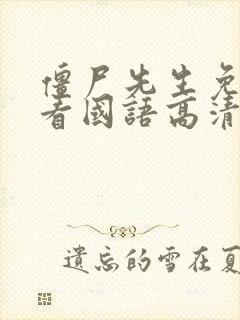 僵尸先生免
看國語高清
遺忘的雪在夏